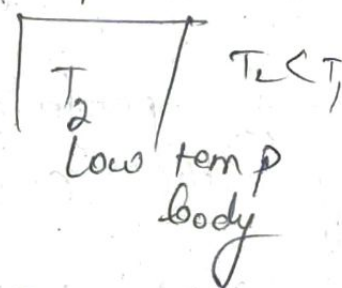 T₂ < T₁
T₂
Low temp
body